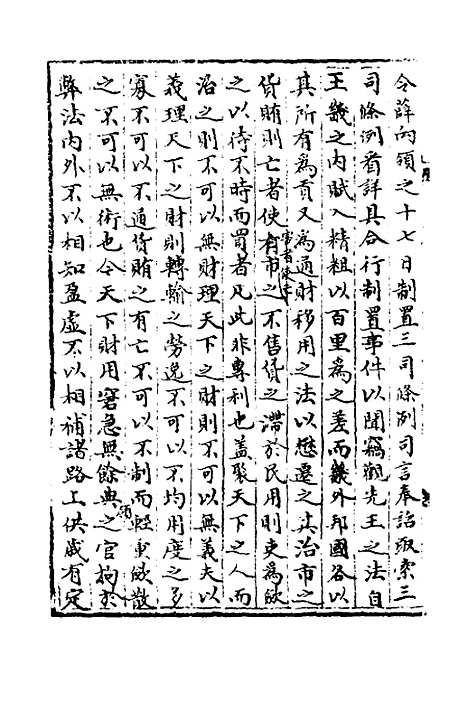 令薛向領之十七日制置三司條例司言奉詔取索三
司條例看詳具合行制置事件以聞竊觀先王之法自
王畿之內賦入精粗以百里為之差而畿外邦國各以
其所有為貢又為通財移用之法以懋遷之其治市之
貨賄則亡者使有害者使亡市之不售貨之滯於民用則吏為歛
之以待不時而買者凡此非專利也蓋聚天下之人而
治之則不可以無財理天下之財則不可以無義夫以
義理天下之財則轉輸之勞逸不可以不均用度之多
寡不可以不通貨賄之有亡不可以不制而輕重歛散
之不可以無術也今天下財用窘急無餘典領之官拘於
弊法內外不以相知盈虛不以相補諸路上供歲有定